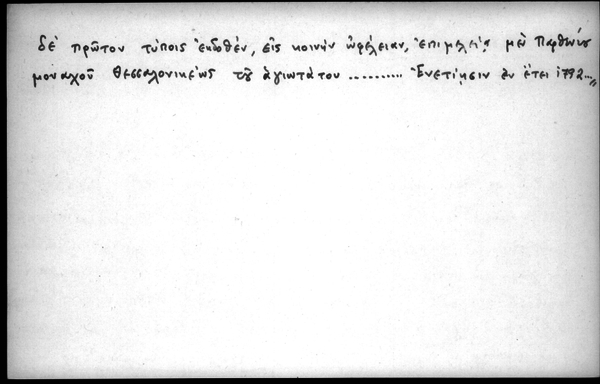 δὲ πρῶτον τύποις ἐκδοθὲν, εἰς κοινὴν ὠφέλειαν, ἐπιμελείᾳ μὲν Παρθενίου
μοναχοῦ Θεσσαλονικέως τοῦ ἁγιωτάτου .......... Ἐνετίῃσιν ἐν ἔτει 1792...,,